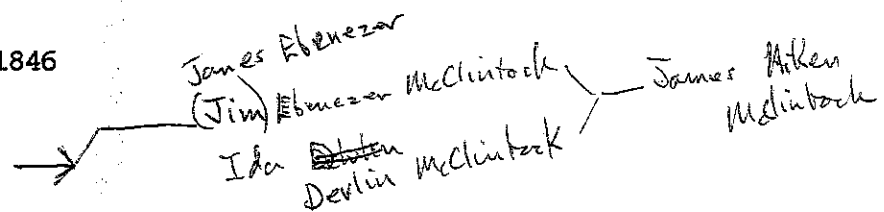 1846
James Ebenezer
(Jim) Ebenezer McClintock
Ida Devlin McClintock
James Aiken
McClintock